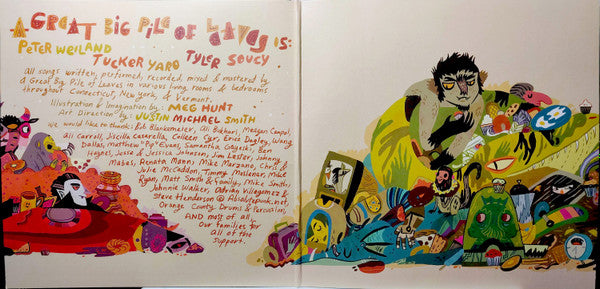 A GREAT BIG PILE OF LEAVES IS:
PETER WEILAND
TUCKER YARO TYLER SOUCY
All songs written, performed, recorded, mixed & mastered by
A Great Big Pile of Leaves in various living rooms & bedrooms
throughout Connecticut, New York, & Vermont.
Illustration & Imagination by: MEG HUNT
Art Direction by: JUSTIN MICHAEL SMITH
We would like to thank: Rob Blankemeter, Ali Bukhari, Meagan
Ali Carroll, Jiscilla Casarella, Colleen Curry, Erica Dagley, Wang
Dallas, Matthew "Pip" Evans, Samantha Gaynard, Ben
Haynes, Jesse & Jessica Johnson, Jim Lester, Johnny
Mabes, Renata Mann, Mike Marzano, Chris &
Julie McCaddon, Timmy Mellener, Mike
Ryan, Matt Smith & Family, Mike Smith,
Johnnie Walker, Dan Killigamez &
Steve Henderson @ Absolutepunk.net,
Orange County Drums & Percussion,
AND most of all,
Our families for
All of the
Support.